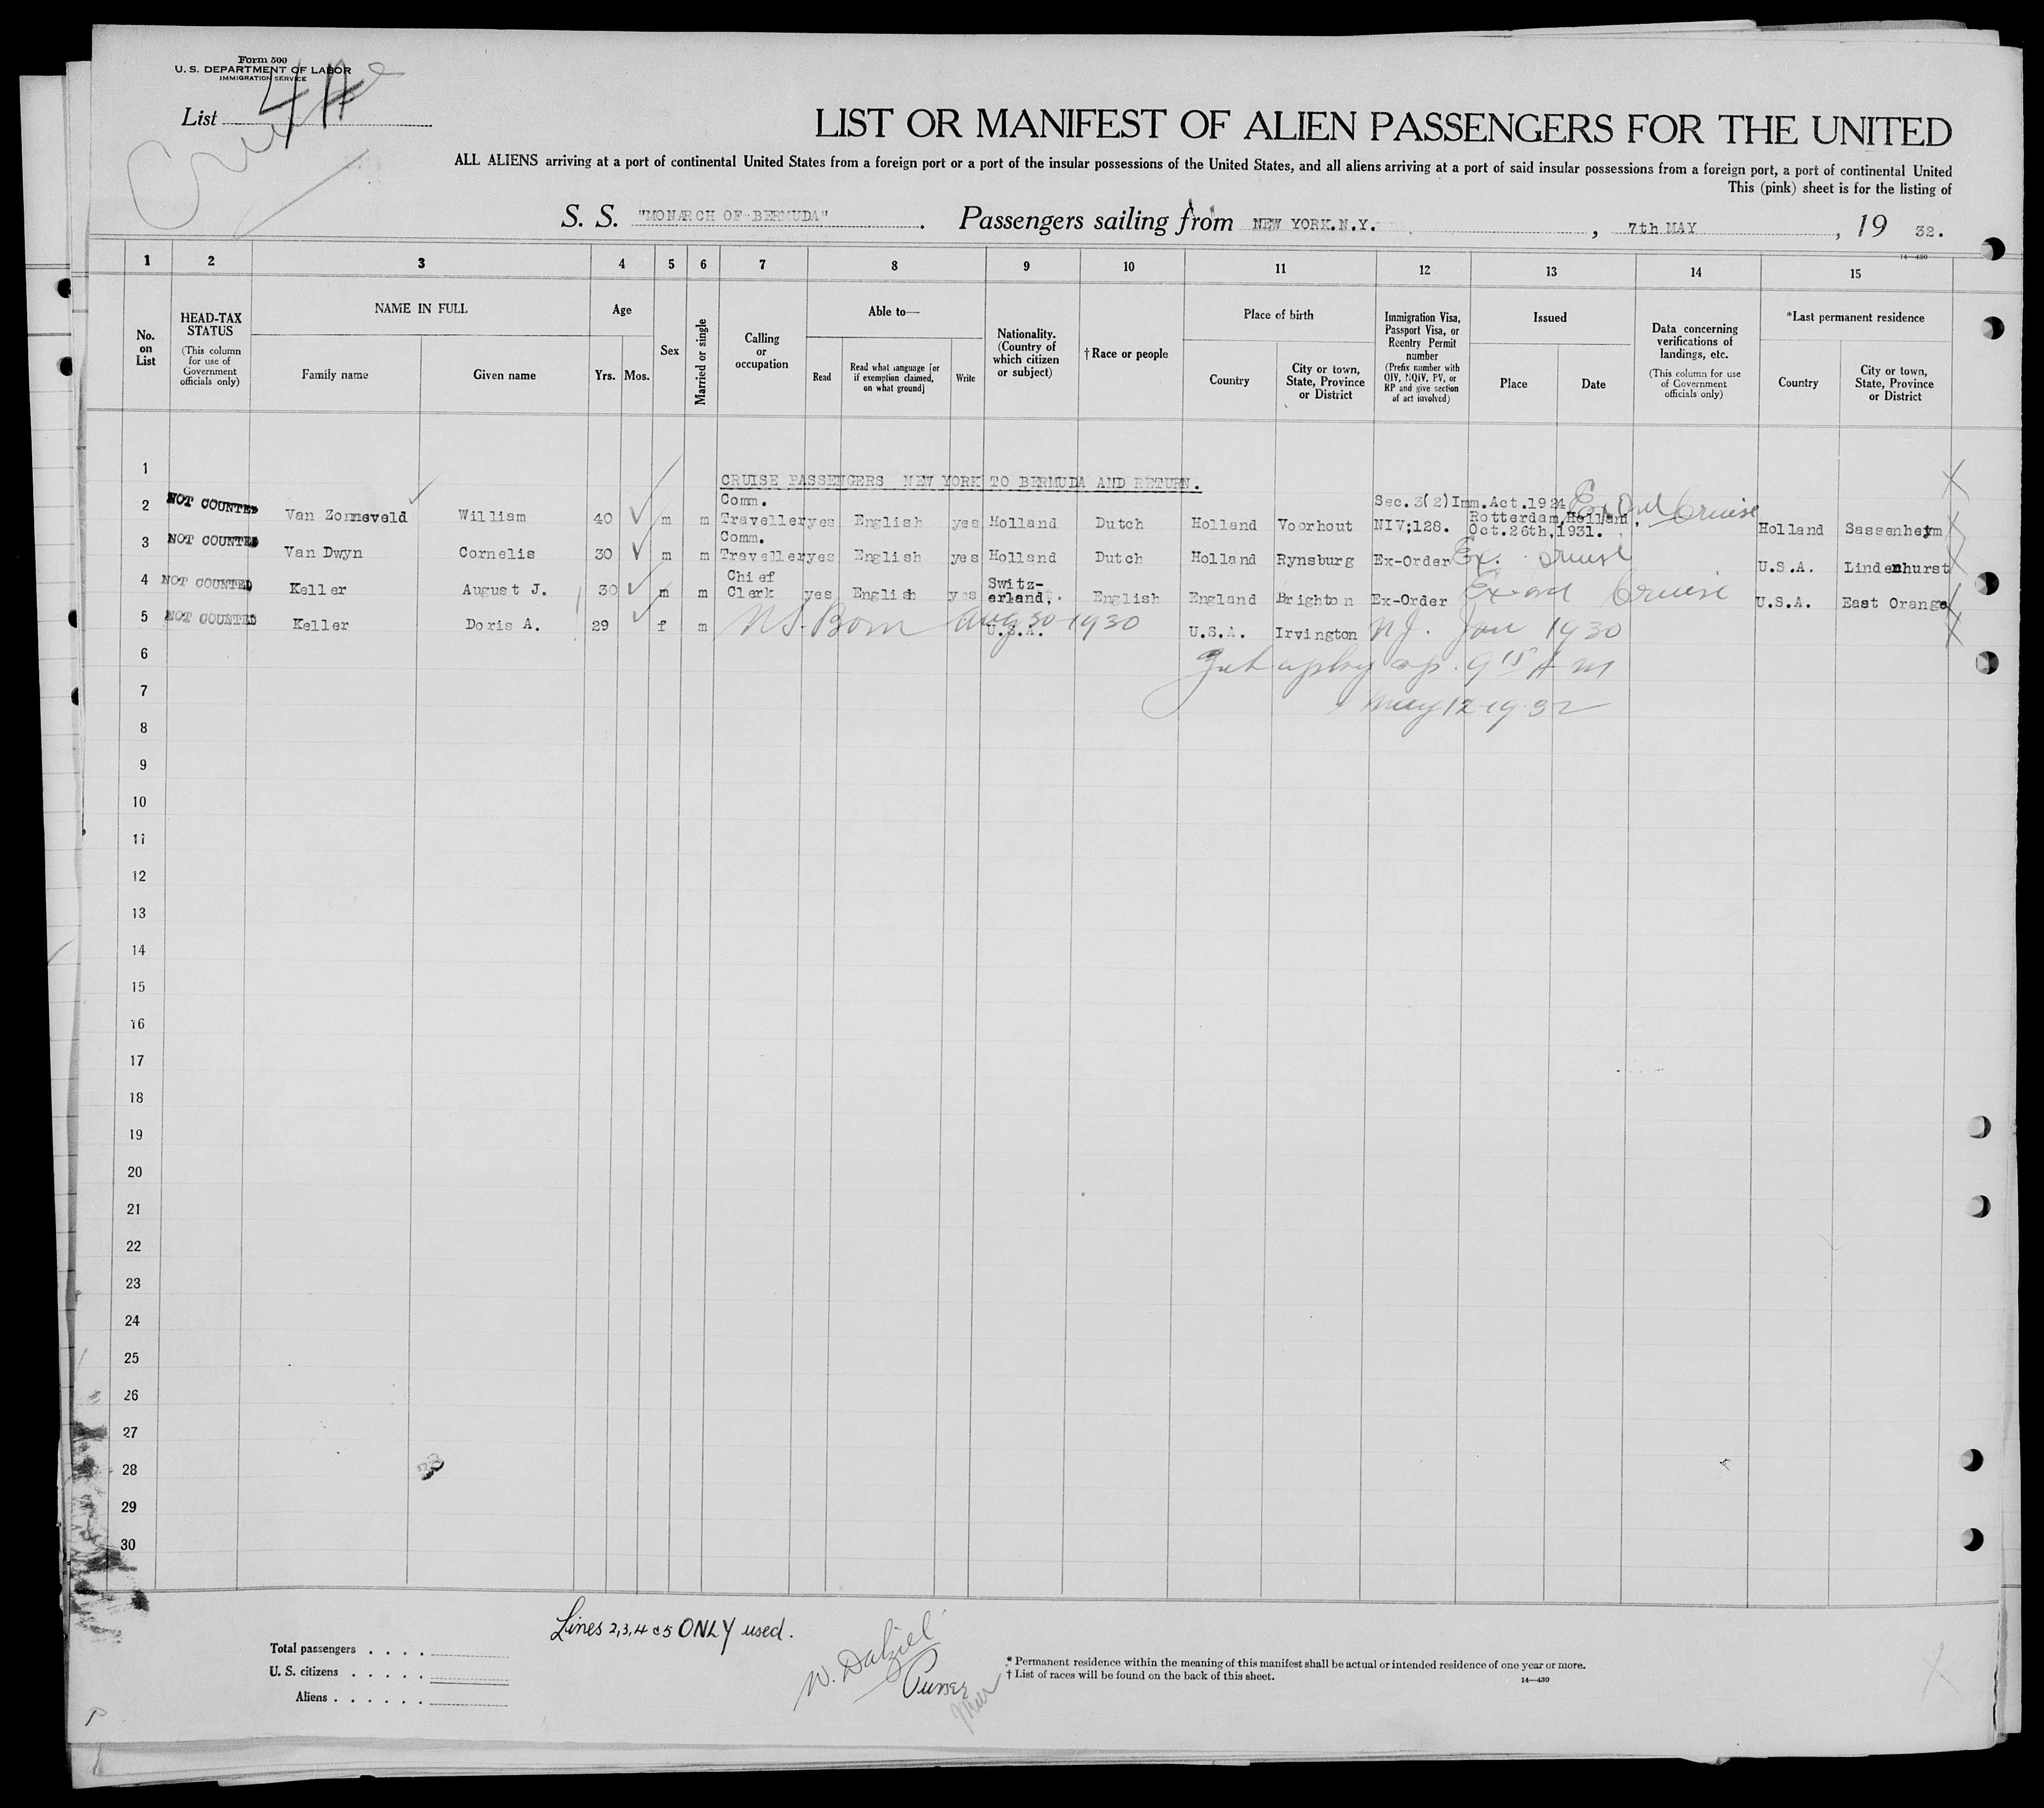 Form 500
U. S. DEPARTMENT OF LABOR
IMMIGRATION SERVICE
List 4
Cruise
LIST OR MANIFEST OF ALIEN PASSENGERS FOR THE UNITED
ALL ALIENS arriving at a port of continental United States from a foreign port or a port of the insular possessions of the United States, and all aliens arriving at a port of said insular possessions from a foreign port, a port of continental United
This (pink) sheet is for the listing of
S. S. "MONARCH OF BERMUDA". Passengers sailing from NEW YORK.N.Y. , 7th MAY , 19 32.
14—430
1 2 3 4 5 6 7 8 9 10 11 12 13 14 15
No. on List
HEAD-TAX STATUS
(This column for use of Government officials only)
NAME IN FULL
Family name
Given name
Age
Yrs. Mos.
Sex
Married or single
Calling or occupation
Able to—
Read
Read what language [or if exemption claimed, on what ground]
Write
Nationality. (Country of which citizen or subject)
†Race or people
Place of birth
Country
City or town, State, Province or District
Immigration Visa, Passport Visa, or Reentry Permit number
(Prefix number with QIV, NQIV, PV, or RP and give section of act involved)
Issued
Place
Date
Data concerning verifications of landings, etc.
(This column for use of Government officials only)
*Last permanent residence
Country
City or town, State, Province or District
1
CRUISE PASSENGERS NEW YORK TO BERMUDA AND RETURN.
2 NOT COUNTED Van Zonneveld William 40 m m Comm. Traveller yes English yes Holland Dutch Holland Voorhout Sec.3(2)Imm.Act.1924 NIV;128. Rotterdam,Holland, Oct.26th,1931. Ex Ord Cruise Holland Sassenheym
3 NOT COUNTED Van Dwyn Cornelis 30 m m Comm. Traveller yes English yes Holland Dutch Holland Rynsburg Ex-Order Ex. Cruise U.S.A. Lindenhurst
4 NOT COUNTED Keller August J. 30 m m Chief Clerk yes English yes Switz-erland. English England Brighton Ex-Order Ex ord Cruise U.S.A. East Orange
5 NOT COUNTED Keller Doris A. 29 f m Born Aug 30 1930 U.S.A. U.S.A. Irvington N.J. Jan 1930
6 9 15 A M
7 May 12-1932
8
9
10
11
12
13
14
15
16
17
18
19
20
21
22
23
24
25
26
27
28
29
30
Lines 2,3,4 & 5 ONLY used.
Total passengers . . . .
U. S. citizens . . . . .
Aliens . . . . . .
W. Dalziel
Purser
* Permanent residence within the meaning of this manifest shall be actual or intended residence of one year or more.
† List of races will be found on the back of this sheet.
14—430
P